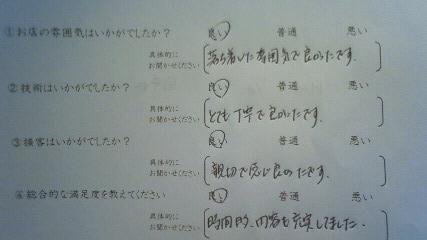 ①お店の雰囲気はいかがでしたか？ 良い 普通 悪い
具体的にお聞かせください 落ち着いた雰囲気で良かったです。
②技術はいかがでしたか？ 良い 普通 悪い
具体的にお聞かせください とても丁寧で良かったです。
③接客はいかがでしたか？ 良い 普通 悪い
具体的にお聞かせください 親切で感じ良かったです。
④総合的な満足度を教えてください 良い 普通 悪い
具体的にお聞かせください 時間的、内容も充実してました。